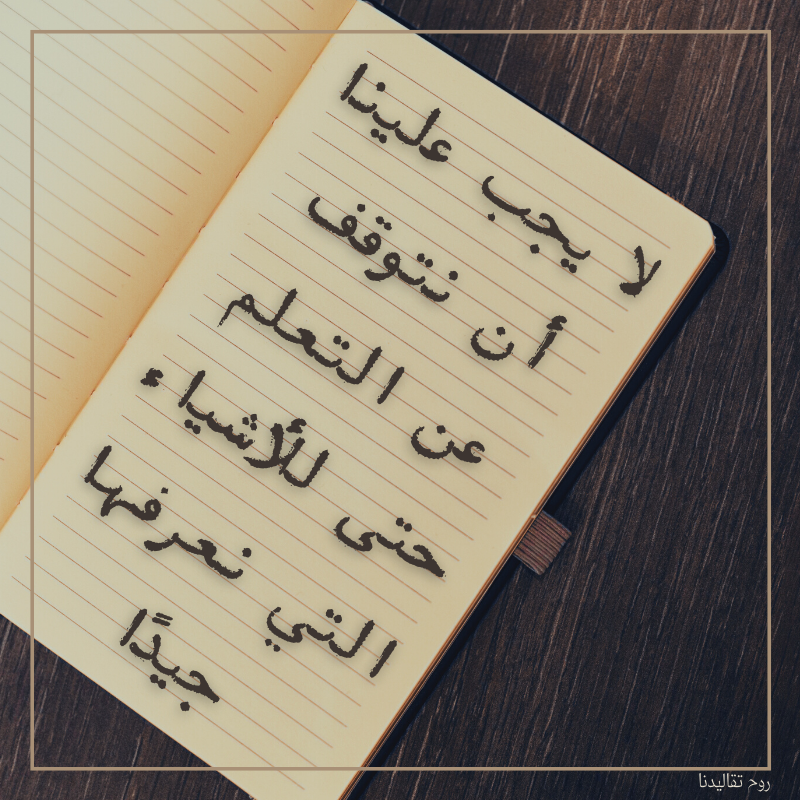 لا يجب علينا
أن نتوقف
عن التعلم
حتى للأشياء
التي نعرفها
جيدًا
روح تقاليدنا